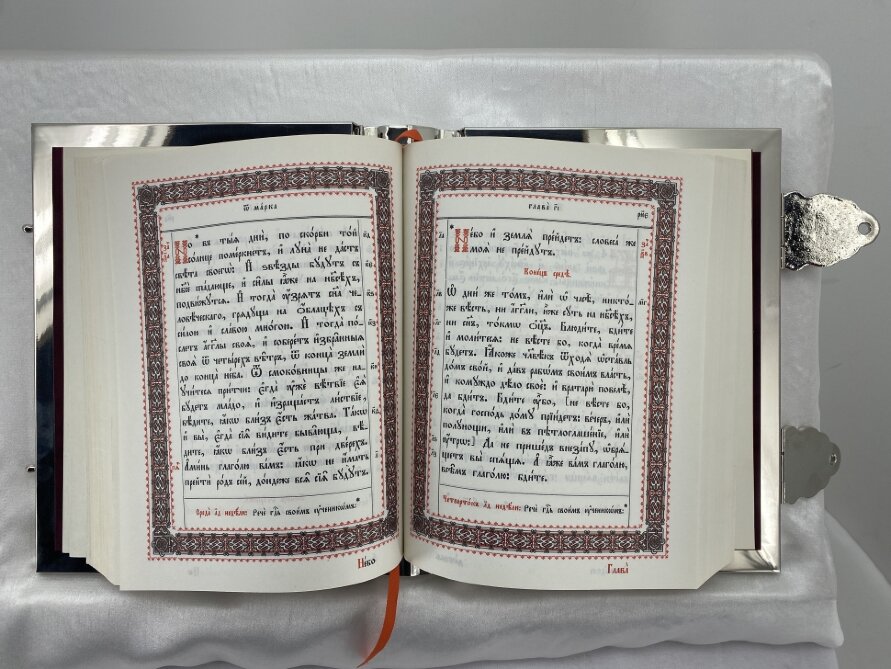 ѿ ма́рка
Но въ ты̑ѧ дни̑, по ско́рби то́й
со́лнце поме́ркнетъ, и҆ лꙋна̀ не да́стъ
свѣ́та своегѡ̀: И҆ ѕвѣ́зды бꙋ́дꙋтъ съ
нб҃сѐ спа́дающе, и҆ си̑лы ꙗ҆̀же на нб҃сѣ́хъ,
подви́жꙋтсѧ. И҆ тогда̀ ᲂу҆́зрѧтъ сн҃а че-
ловѣ́ческаго, грѧдꙋ́ща на ѡ҆́блацѣхъ съ
си́лою и҆ сла́вою мно́гою. И҆ тогда̀ по́-
слетъ а҆́гг҃лы своѧ̑, и҆ собере́тъ и҆збра̑нныѧ
своѧ̑ ѿ четы́рехъ вѣ̑тръ, ѿ конца̀ землѝ
до конца̀ не́ба. Ѿ смоко́вницы же на-
ꙋчи́тесѧ при́тчи: Е҆гда̀ ᲂу҆жѐ вѣ́твїе є҆ѧ̀
бꙋ́детъ мла́до, и҆ и҆зраща́етъ ли́ствїе,
вѣ́дите, ꙗ҆́кѡ бли́зъ є҆́сть жа́тва. Та́кѡ
и҆ вы̀, є҆гда̀ сїѧ̑ ви́дите быва̑юща, вѣ́-
дите, ꙗ҆́кѡ бли́зъ є҆́сть при две́рехъ.
А҆ми́нь глаго́лю ва́мъ: ꙗ҆́кѡ не и҆́мать
прейтѝ ро́дъ се́й, до́ндеже всѧ̑ сїѧ̑ бꙋ́дꙋтъ.
Среда̀ л҃д недѣ́ли: Речѐ гд҇ь свои̑мъ ᲂу҆ченикѡ́мъ:*
Не́бо
глава̀ г҃і
рн҃є
Не́бо и҆ землѧ̀ пре́йдетъ: словеса́ же
моѧ̑ не пре́йдꙋтъ.
Коне́цъ средѣ̀.
Ѡ҆ днѝ же то́мъ, и҆лѝ ѡ҆ часѣ̀, никто́-
же вѣ́сть, ни а҆́гг҃ли, и҆̀же сꙋ́ть на нб҃сѣ́хъ,
ни сн҃ъ, то́кмѡ ѻ҆ц҃ъ. Блюди́те, бди́те
и҆ моли́тесѧ: не вѣ́сте бо, когда̀ вре́мѧ
бꙋ́детъ. Ꙗ҆́коже человѣ́къ ѿходѧ̀ ѡ҆ста́вль
до́мъ сво́й, и҆ да́въ рабѡ́мъ свои̑мъ вла́сть,
и҆ комꙋ́ждо дѣ́ло своѐ: и҆ вратарю̀ повелѣ̀,
да бди́тъ. Бди́те ᲂу҆̀бо, [не вѣ́сте бо,
когда̀ господь до́мꙋ прїи́детъ: ве́черъ, и҆лѝ
полꙋ́нощи, и҆лѝ въ пѣтлоглаше́нїе, и҆лѝ
ᲂу҆́трѡ:] Да не прише́дъ внеза́пꙋ, ѡ҆брѧ́-
щетъ вы̀ спѧ́щѧ. А҆ ꙗ҆̀же ва́мъ глаго́лю,
всѣ̑мъ глаго́лю: бди́те.
Четверто́къ л҃д недѣ́ли: Речѐ гд҇ь свои̑мъ ᲂу҆ченикѡ́мъ:*
Глава̀